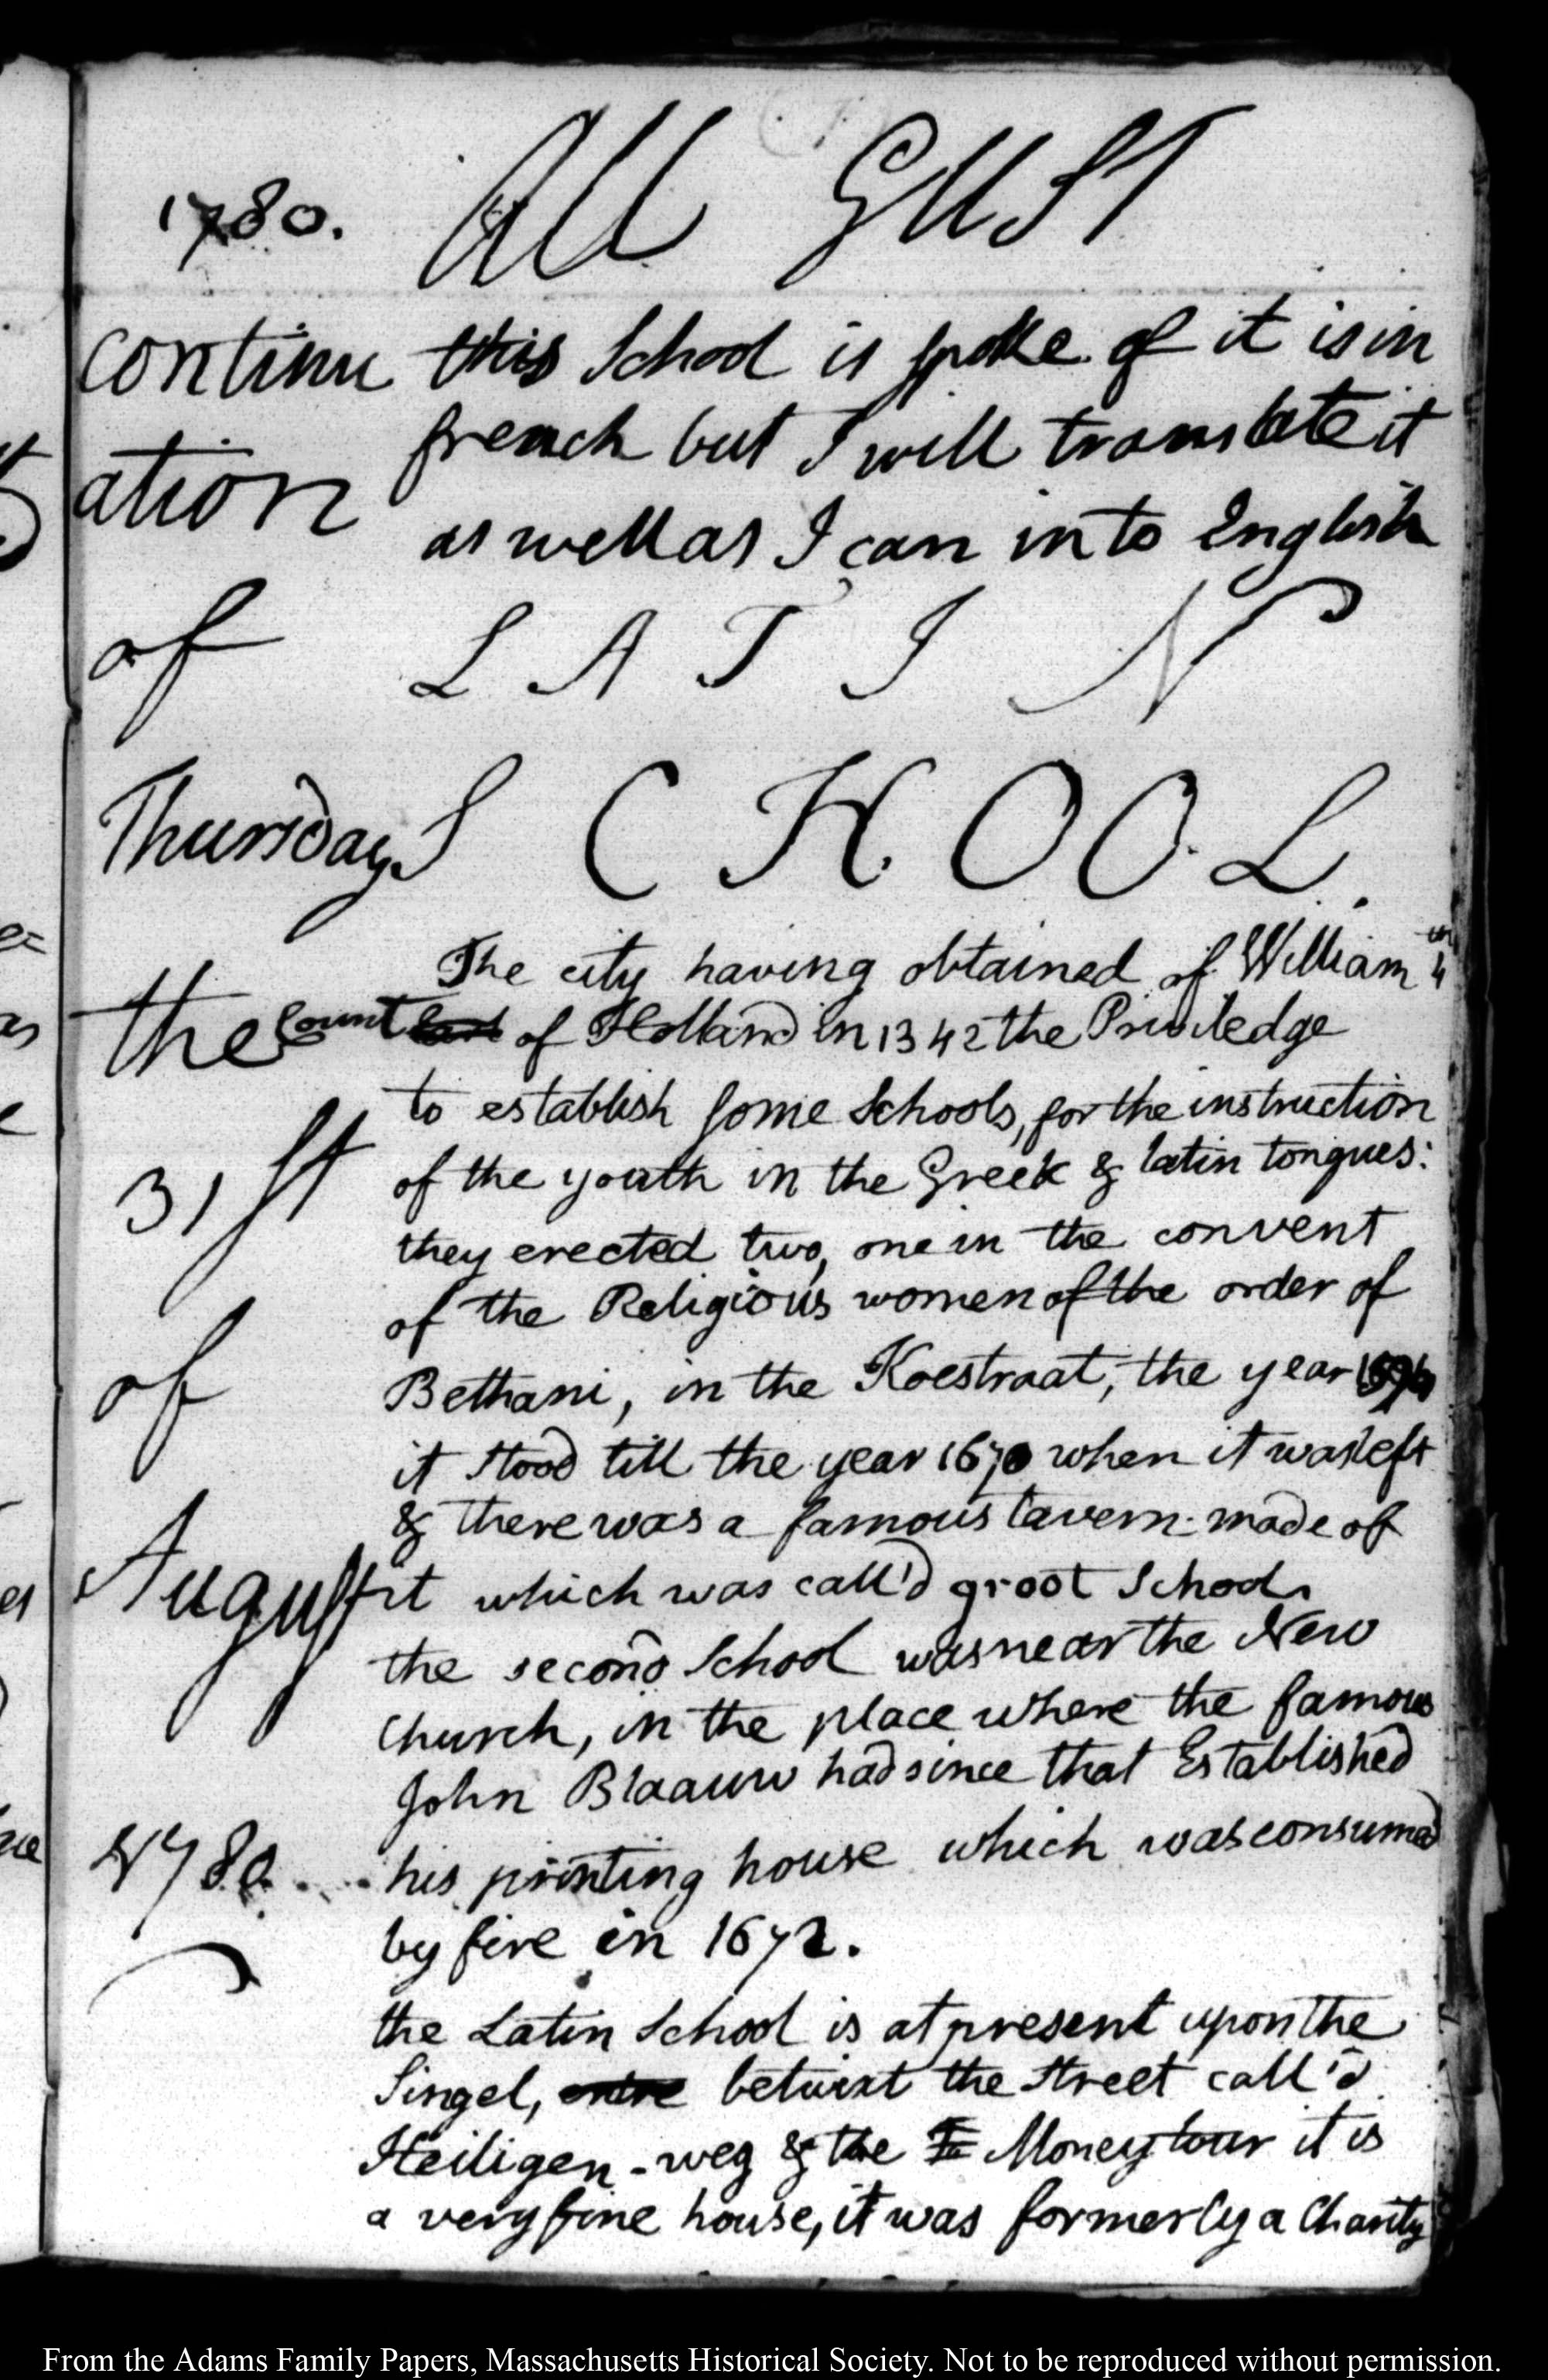 1780.
AU GUST
continu
ation
of
Thursday
the
31st
of
August
1780
this School is spoke of it is in
french but I will translate it
as well as I can in to English
L A T I N
S C H O O L.
The city having obtained of William 4th
Count of Holland in 1342 the Priviledge
to establish some Schools, for the instruction
of the youth in the Greek & latin tongues:
they erected two, one in the convent
of the Religious women of the order of
Bethani, in the Koestraat, the year
it stood till the year 1670 when it was left
& there was a famous tavern made of
it which was call'd groot School.
the second School was near the New
Church, in the place where the famous
John Blaauw had since that Established
his printing house which was consumed
by fire in 1672.
the Latin School is at present upon the
Singel, entre betwixt the Street call'd
Heiligen-weg & the Money tour it is
a very fine house, it was formerly a Charity
From the Adams Family Papers, Massachusetts Historical Society. Not to be reproduced without permission.